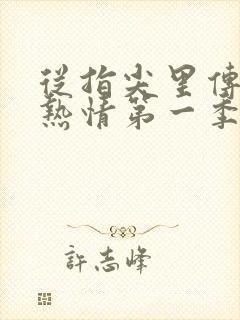 從指尖里傳
熱情第一季
許志峰